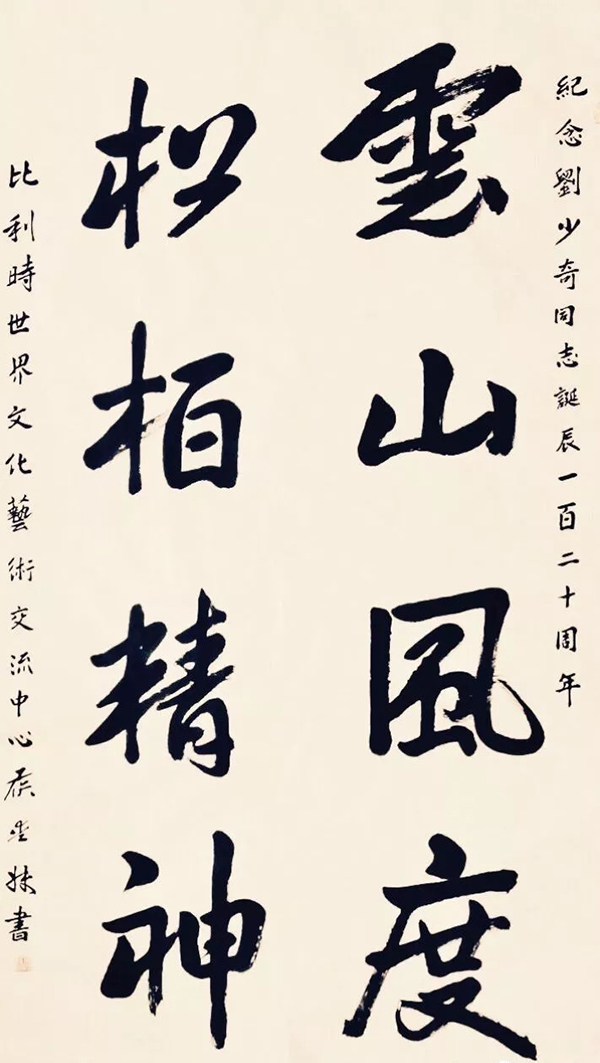 紀念劉少奇同志誕辰一百二十周年
雲山風度
松柏精神
比利時世界文化藝術交流中心侯 妹書